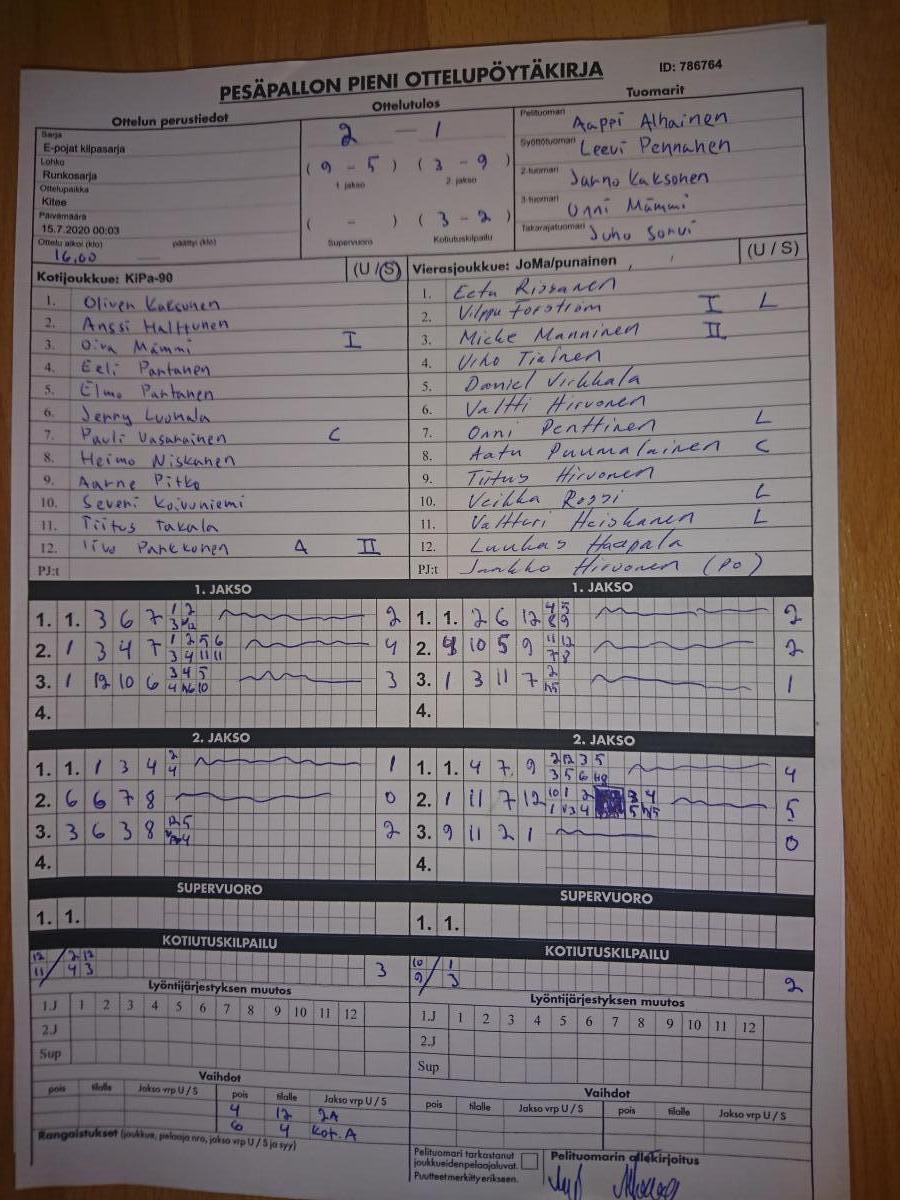 PESÄPALLON PIENI OTTELUPÖYTÄKIRJA ID: 786764
Ottelun perustiedot
Sarja
E-pojat kilpasarja
Lohko
Runkosarja
Ottelupaikka
Kitee
Päivämäärä
15.7.2020 00:03
Ottelu alkoi (klo) päättyi (klo)
16,00
Ottelutulos
2 — 1
( 9 - 5 ) ( 3 - 9 )
1. jakso 2. jakso
( - ) ( 3 - 2 )
Supervuoro Kotiutuskilpailu
Tuomarit
Pelituomari Aappi Alhainen
Syöttötuomari Leevi Pennanen
2-tuomari Jarno Kaksonen
3-tuomari Onni Mämmi
Takarajatuomari Juho Sorvi
Kotijoukkue: KiPa-90 (U / S)
1. Oliver Kaksonen
2. Anssi Halttunen
3. Oiva Mämmi I
4. Eeli Partanen
5. Elmo Partanen
6. Jenny Luukala
7. Pauli Vasarainen C
8. Heimo Niskanen
9. Aarne Pitko
10. Severi Koivuniemi
11. Tiitus Takala
12. Iivo Parkkonen A II
PJ:t
Vierasjoukkue: JoMa/punainen (U / S)
1. Eetu Rissanen
2. Vilppu Forsström I L
3. Micke Manninen II
4. Urho Tiainen
5. Daniel Virkkala
6. Valtti Hirvonen
7. Onni Penttinen L
8. Aatu Puumalainen C
9. Tiitus Hirvonen
10. Veikka Rossi L
11. Valtteri Heiskanen L
12. Luukas Haapala
PJ:t Jarkko Hirvonen (PO)
1. JAKSO
1. 1. 3 6 7 2
2. 1 3 4 7 4
3. 1 12 10 6 3
4.
1. JAKSO
1. 1. 2 6 12 2
2. 10 5 9 2
3. 1 3 11 7 1
4.
2. JAKSO
1. 1. 1 3 4 1
2. 6 6 7 8 0
3. 3 6 3 8 2
4.
2. JAKSO
1. 1. 4 7 9 4
2. 1 11 7 12 5
3. 9 11 2 1 0
4.
SUPERVUORO
1. 1.
SUPERVUORO
1. 1.
KOTIUTUSKILPAILU
12 / 2 12
11 4 3 3
KOTIUTUSKILPAILU
10 / 1
9 3 2
Lyöntijärjestyksen muutos
1.J 1 2 3 4 5 6 7 8 9 10 11 12
2.J
Sup
Lyöntijärjestyksen muutos
1.J 1 2 3 4 5 6 7 8 9 10 11 12
2.J
Sup
Vaihdot
pois tilalle Jakso vrp U / S pois tilalle Jakso vrp U / S
4 12 2A
6 4 Kot. A
Rangaistukset (joukkue, pelaaja nro, jakso vrp U / S ja syy)
Vaihdot
pois tilalle Jakso vrp U / S pois tilalle Jakso vrp U / S
Pelituomari tarkastanut
joukkueiden pelaajaluvat.
Puutteet merkitty erikseen.
Pelituomarin allekirjoitus